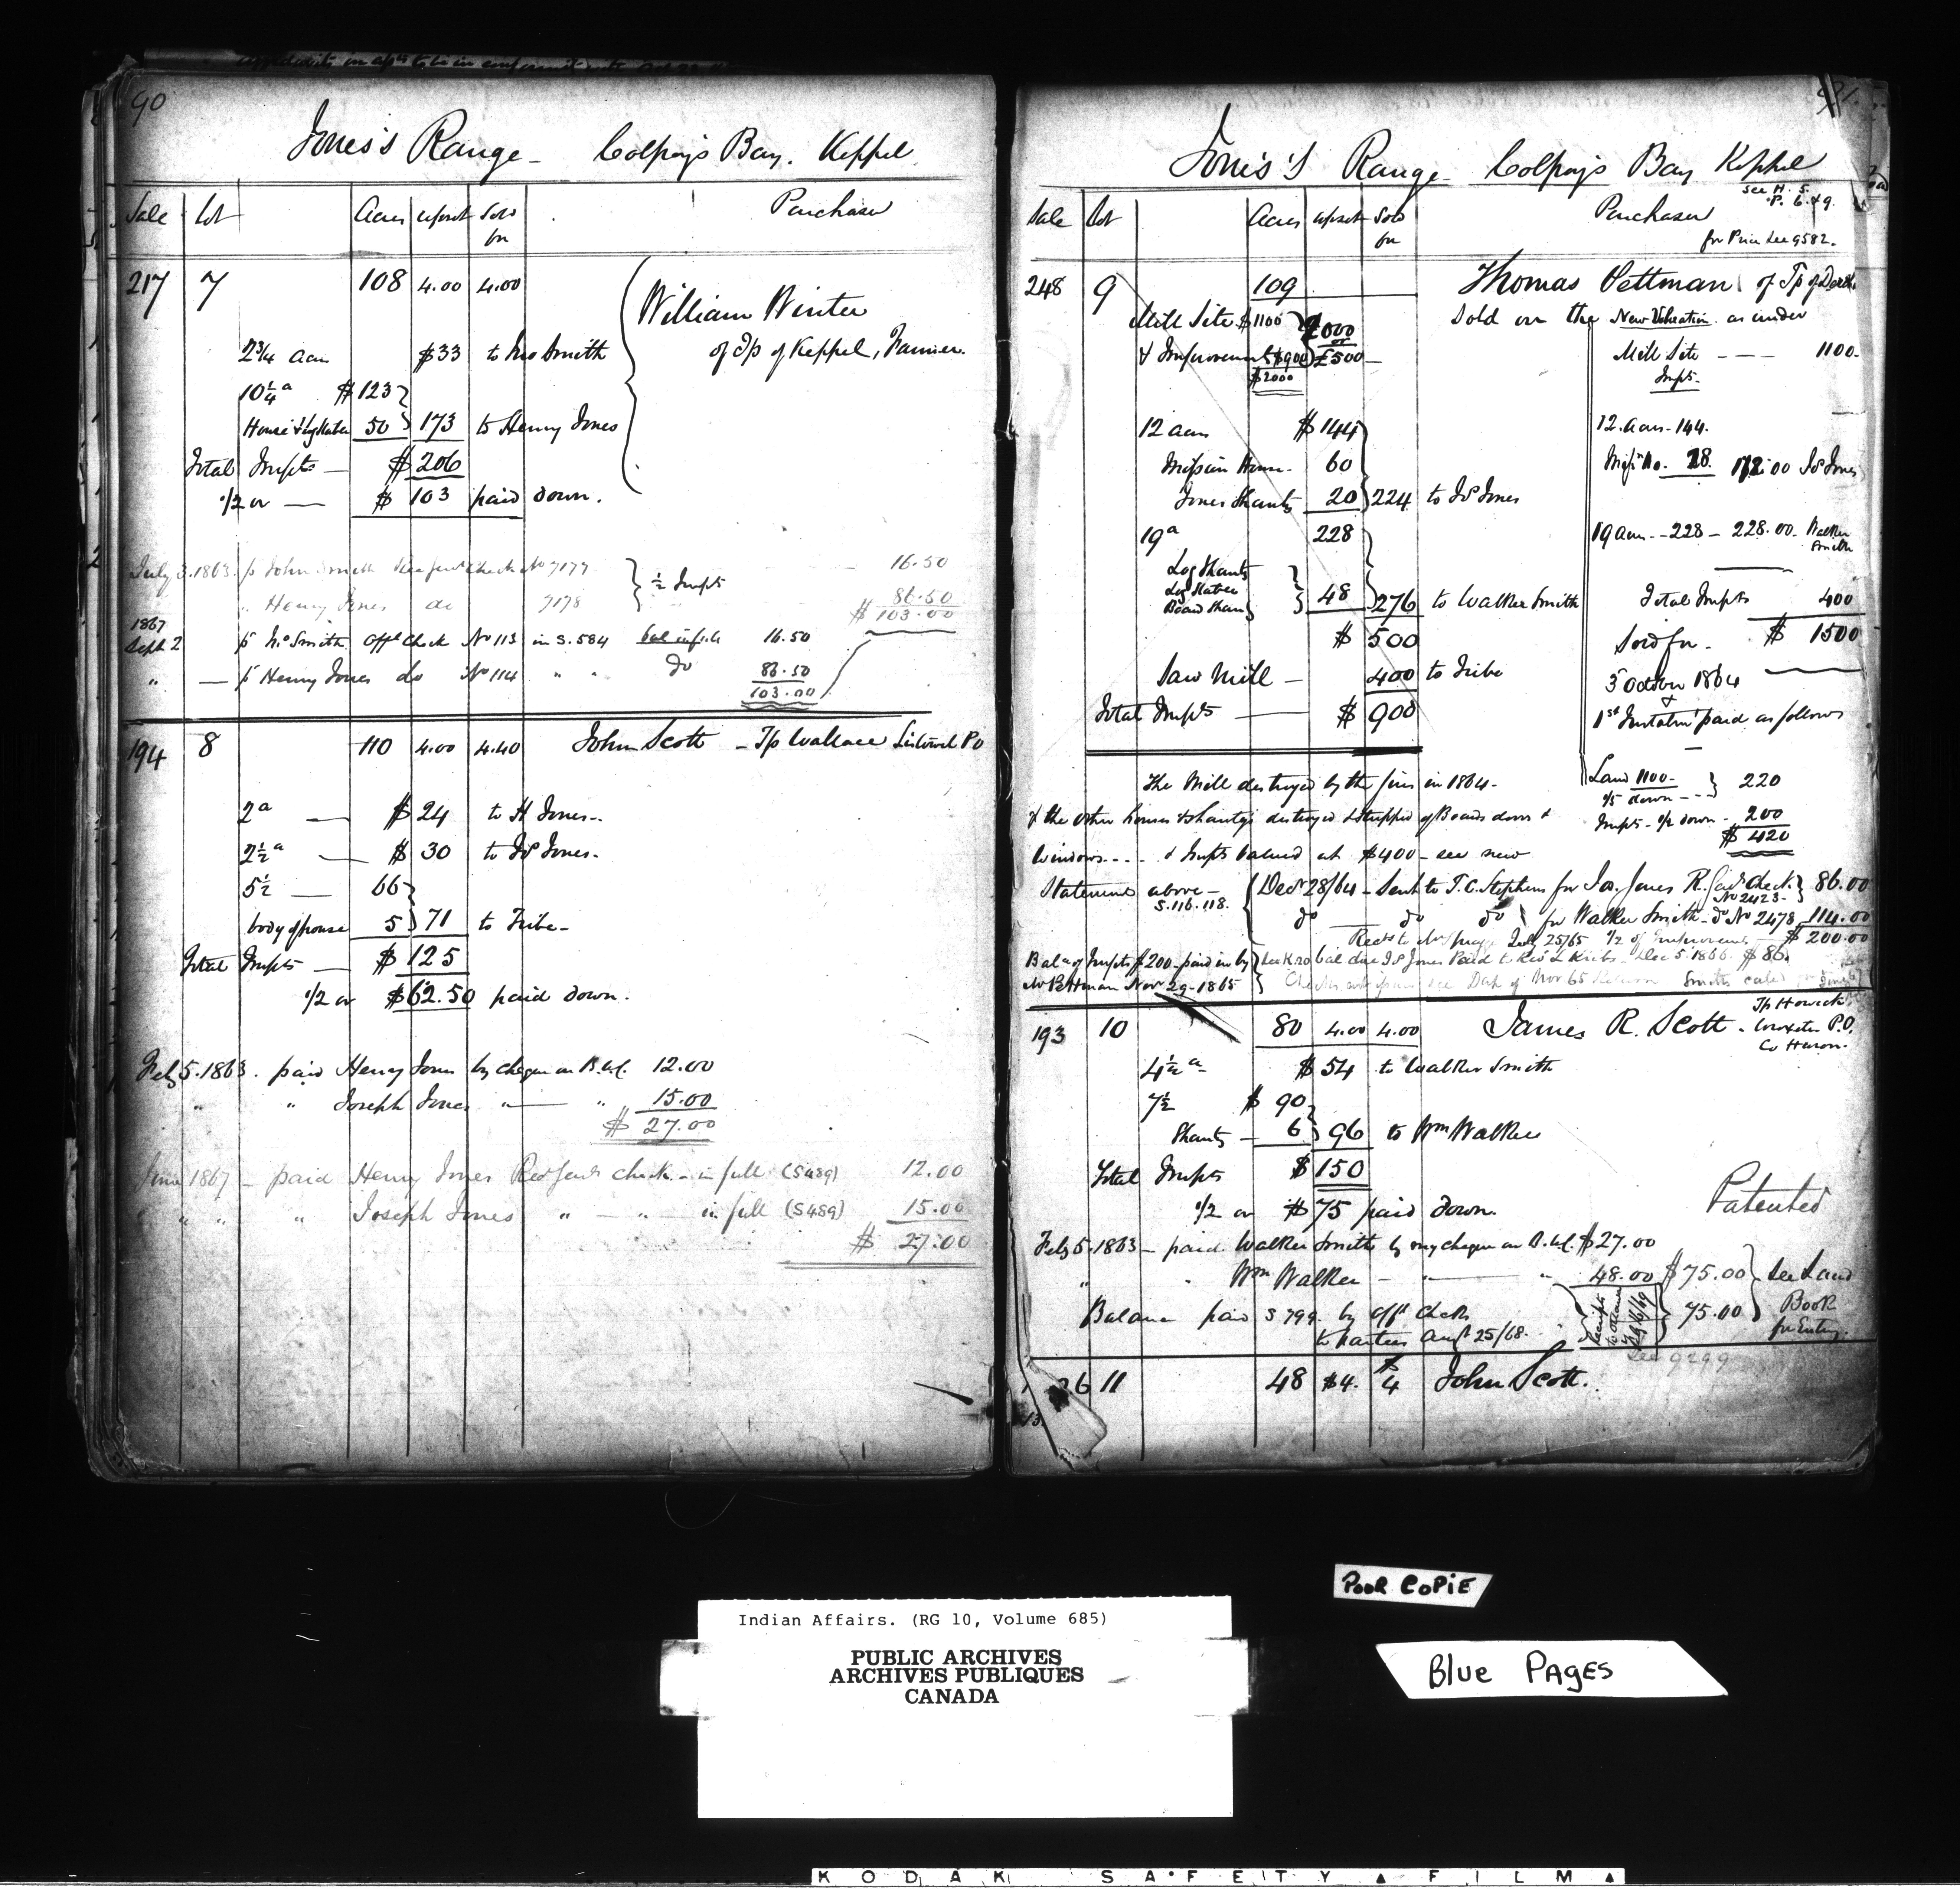 90
Jones's Range - Colpoy's Bay. Keppel
Sale Lot Acres upset Sold for Purchaser
217 7 108 4.00 4.00 William Winter
of Tp of Keppel, Farmer.
2 3/4 acres $33 to Jno Smith
10 1/4 a $123
House & Log Stable 50 173 to Henry Jones
Total Impts — $206
1/2 or — $103 paid down.
July 3. 1863. p John Smith Check No 7177 1/2 Impts 16.50
" Henry Jones do 7178 86.50
$103.00
1867
Sept 2 p Jno Smith Offl Check No 113 in S.584 bal in full 16.50
" — p Henry Jones do No 114 " " do 86.50
103.00
194 8 110 4.00 4.40 John Scott - Tp Wallace Listowel PO
2 a — $24 to H Jones -
2 1/2 a — $30 to Js Jones -
5 1/2 — 66
body of house 5 71 to Tribe -
Total Impts — $125
1/2 or $62.50 paid down.
Feby 5. 1863. paid Henry Jones by cheque on B.U.C. 12.00
" " Joseph Jones " — " 15.00
$27.00
June 1867 - paid Henry Jones Rec Genls check - in full (S489) 12.00
" " " Joseph Jones " — " — in full (S489) 15.00
$27.00
91.
Jones's Range - Colpoy's Bay Keppel
see H. 5.
P. 6. & 9.
Sale Lot Acres upset Sold for Purchaser
for Price see 9582.
248 9 109 Thomas Pettman of Tp of Derby
Sold on the New Valuation as under
Mill Site $1100 2000
or
& Improvements $900 £500
$2000
Mill Site — 1100.
Impts.
12 acres $144
Mission House - 60
Jones Shanty 20 224 to Js Jones
12 acres - 144.
Missn Ho. 28. 172.00 Js Jones
19 a 228
Log Shanty
Log Stable
Board Shanty 48 276 to Walker Smith
$500
19 acres - 228 - 228.00 Walker Smith
Total Impts 400
Sold for - $1500
Saw Mill — 400 to Tribe
Total Impts — $900
3 October 1864
&
1st Instalmt paid as follows
Land 1100 -
1/5 down - - 220
Impts - 1/2 down - 200
$420
The Mill destroyed by the fires in 1864 -
& the other houses & shantys destroyed & stripped of Boards doors &
Windows - - - & Impts valued at $400 - see new
Statement above -
S.116.118.
Decr 28/64 - Sent to T.C. Stephens for Jos. Jones R. Genls Check No 2423 - 86.00
do do do for Walker Smith - do No 2478 114.00
July 25/65 1/2 of Improvements $200.00
Balce of Impts $200 - paid in by
Mr Pettman Novr 29 - 1865
bal due Js Jones Paid to Revd L Kribs - Dec 5. 1866. $86.
193 10 80 4.00 4.00 James R. Scott -
Tp Howick
Wroxeter P.O.
Co Huron.
4 1/2 a - $54 to Walker Smith
7 1/2 $90
Shanty - 6 96 to Wm Walker
Total Impts $150
1/2 or $75 paid down.
Patented
Feby 5. 1863 - paid Walker Smith by my cheque on B.U.C. $27.00
" " Wm Walker - " — " 48.00 $75.00
Balance paid S 799. by Offl Checks
to Parties Augt 25/68. 75.00
See Land
Book
for Entry.
See 9299
26 11 48 $4. $4 John Scott.
13.
POOR COPiE
Indian Affairs. (RG 10, Volume 685)
PUBLIC ARCHIVES
ARCHIVES PUBLIQUES
CANADA
Blue PAgES
KODAK SAFETY FILM